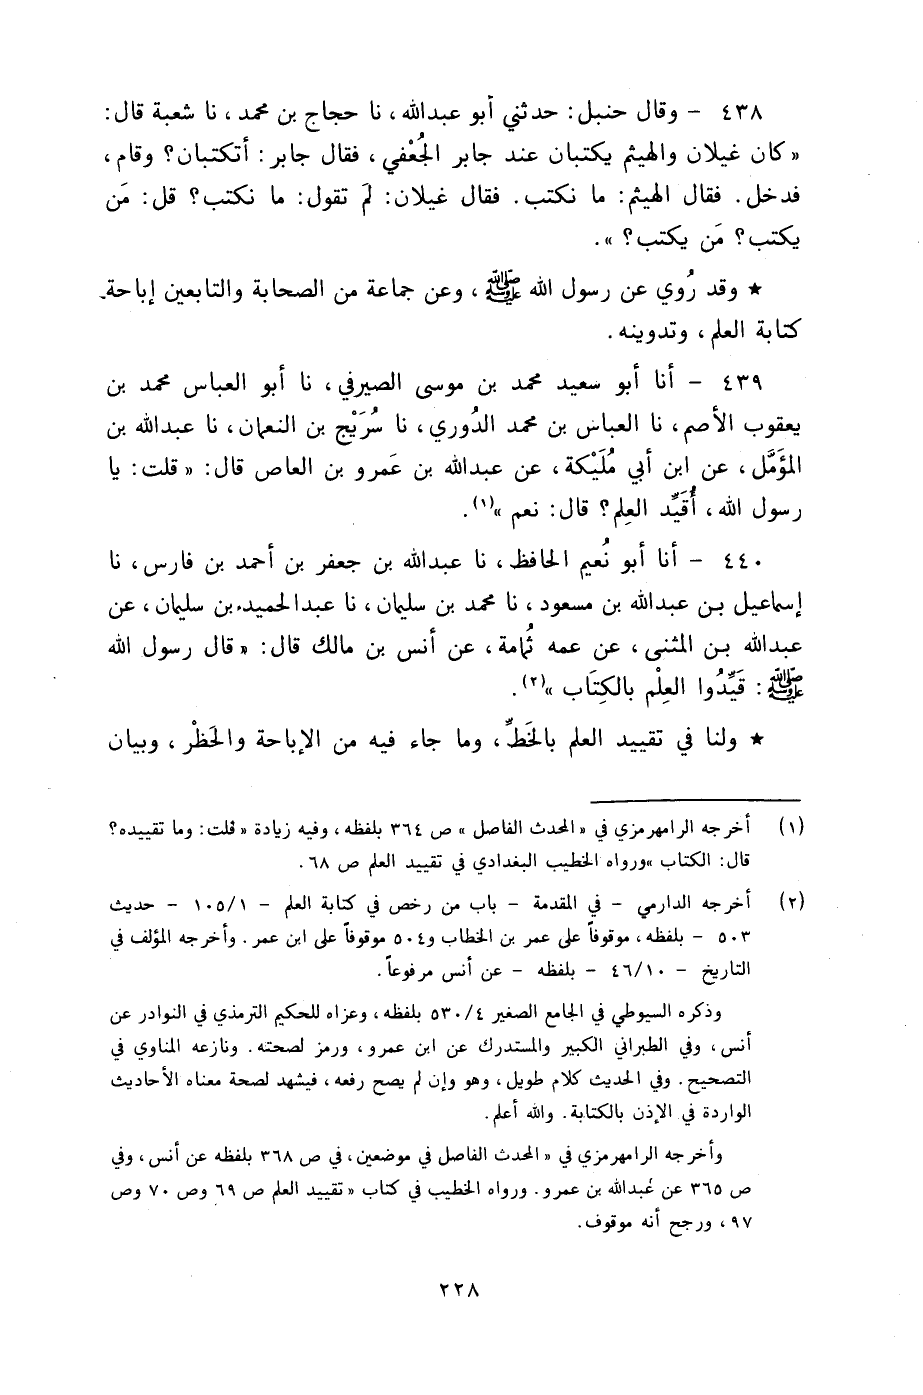 ٤٣٨ - وقال حنبل: حدثني أبو عبدالله، نا حجاج بن محمد، نا شعبة قال:
«كان غيلان والهيثم يكتبان عند جابر الجُعْفي، فقال جابر: أتكتبان؟ وقام،
فدخل. فقال الهيثم: ما نكتب. فقال غيلان: لَم تقول: ما نكتب؟ قل: مَن
يكتب؟ مَن يكتب؟».
★ وقد رُوي عن رسول الله ﷺ، وعن جماعة من الصحابة والتابعين إباحة
كتابة العلم، وتدوينه.
٤٣٩ - أنا أبو سعيد محمد بن موسى الصيرفي، نا أبو العباس محمد بن
يعقوب الأصم، نا العباس بن محمد الدُوري، نا سُرَيْج بن النعمان، نا عبدالله بن
المؤَمَّل، عن ابن أبي مُلَيْكة، عن عبدالله بن عَمرو بن العاص قال: «قلت: يا
رسول الله، أُقَيِّد العِلم؟ قال: نعم»(١).
٤٤٠ - أنا أبو نُعيم الحافظ، نا عبدالله بن جعفر بن أحمد بن فارس، نا
إسماعيل بن عبدالله بن مسعود، نا محمد بن سليمان، نا عبدالحميد بن سليمان، عن
عبدالله بن المثنى، عن عمه ثُمامة، عن أنس بن مالك قال: «قال رسول الله
ﷺ: قَيِّدُوا العِلْم بالكِتَاب»(٢).
★ ولنا في تقييد العلم بالخَطِّ، وما جاء فيه من الإباحة والحَظْر، وبيان
(١) أخرجه الرامهرمزي في «المحدث الفاصل» ص ٣٦٤ بلفظه، وفيه زيادة «قلت: وما تقييده؟
قال: الكتاب» ورواه الخطيب البغدادي في تقييد العلم ص ٦٨.
(٢) أخرجه الدارمي - في المقدمة - باب من رخص في كتابة العلم - ١٠٥/١ - حديث
٥٠٣ - بلفظه، موقوفاً على عمر بن الخطاب و٥٠٤ موقوفاً على ابن عمر. وأخرجه المؤلف في
التاريخ - ٤٦/١٠ - بلفظه - عن أنس مرفوعاً.
وذكره السيوطي في الجامع الصغير ٥٣٠/٤ بلفظه، وعزاه للحكيم الترمذي في النوادر عن
أنس، وفي الطبراني الكبير والمستدرك عن ابن عمرو، ورمز لصحته. ونازعه المناوي في
التصحيح. وفي الحديث كلام طويل، وهو وإن لم يصح رفعه، فيشهد لصحة معناه الأحاديث
الواردة في الإذن بالكتابة. والله أعلم.
وأخرجه الرامهرمزي في «المحدث الفاصل في موضعين، في ص ٣٦٨ بلفظه عن أنس، وفي
ص ٣٦٥ عن عَبدالله بن عمرو. ورواه الخطيب في كتاب «تقييد العلم ص ٦٩ وص ٧٠ وص
٩٧، ورجح أنه موقوف.
٢٢٨